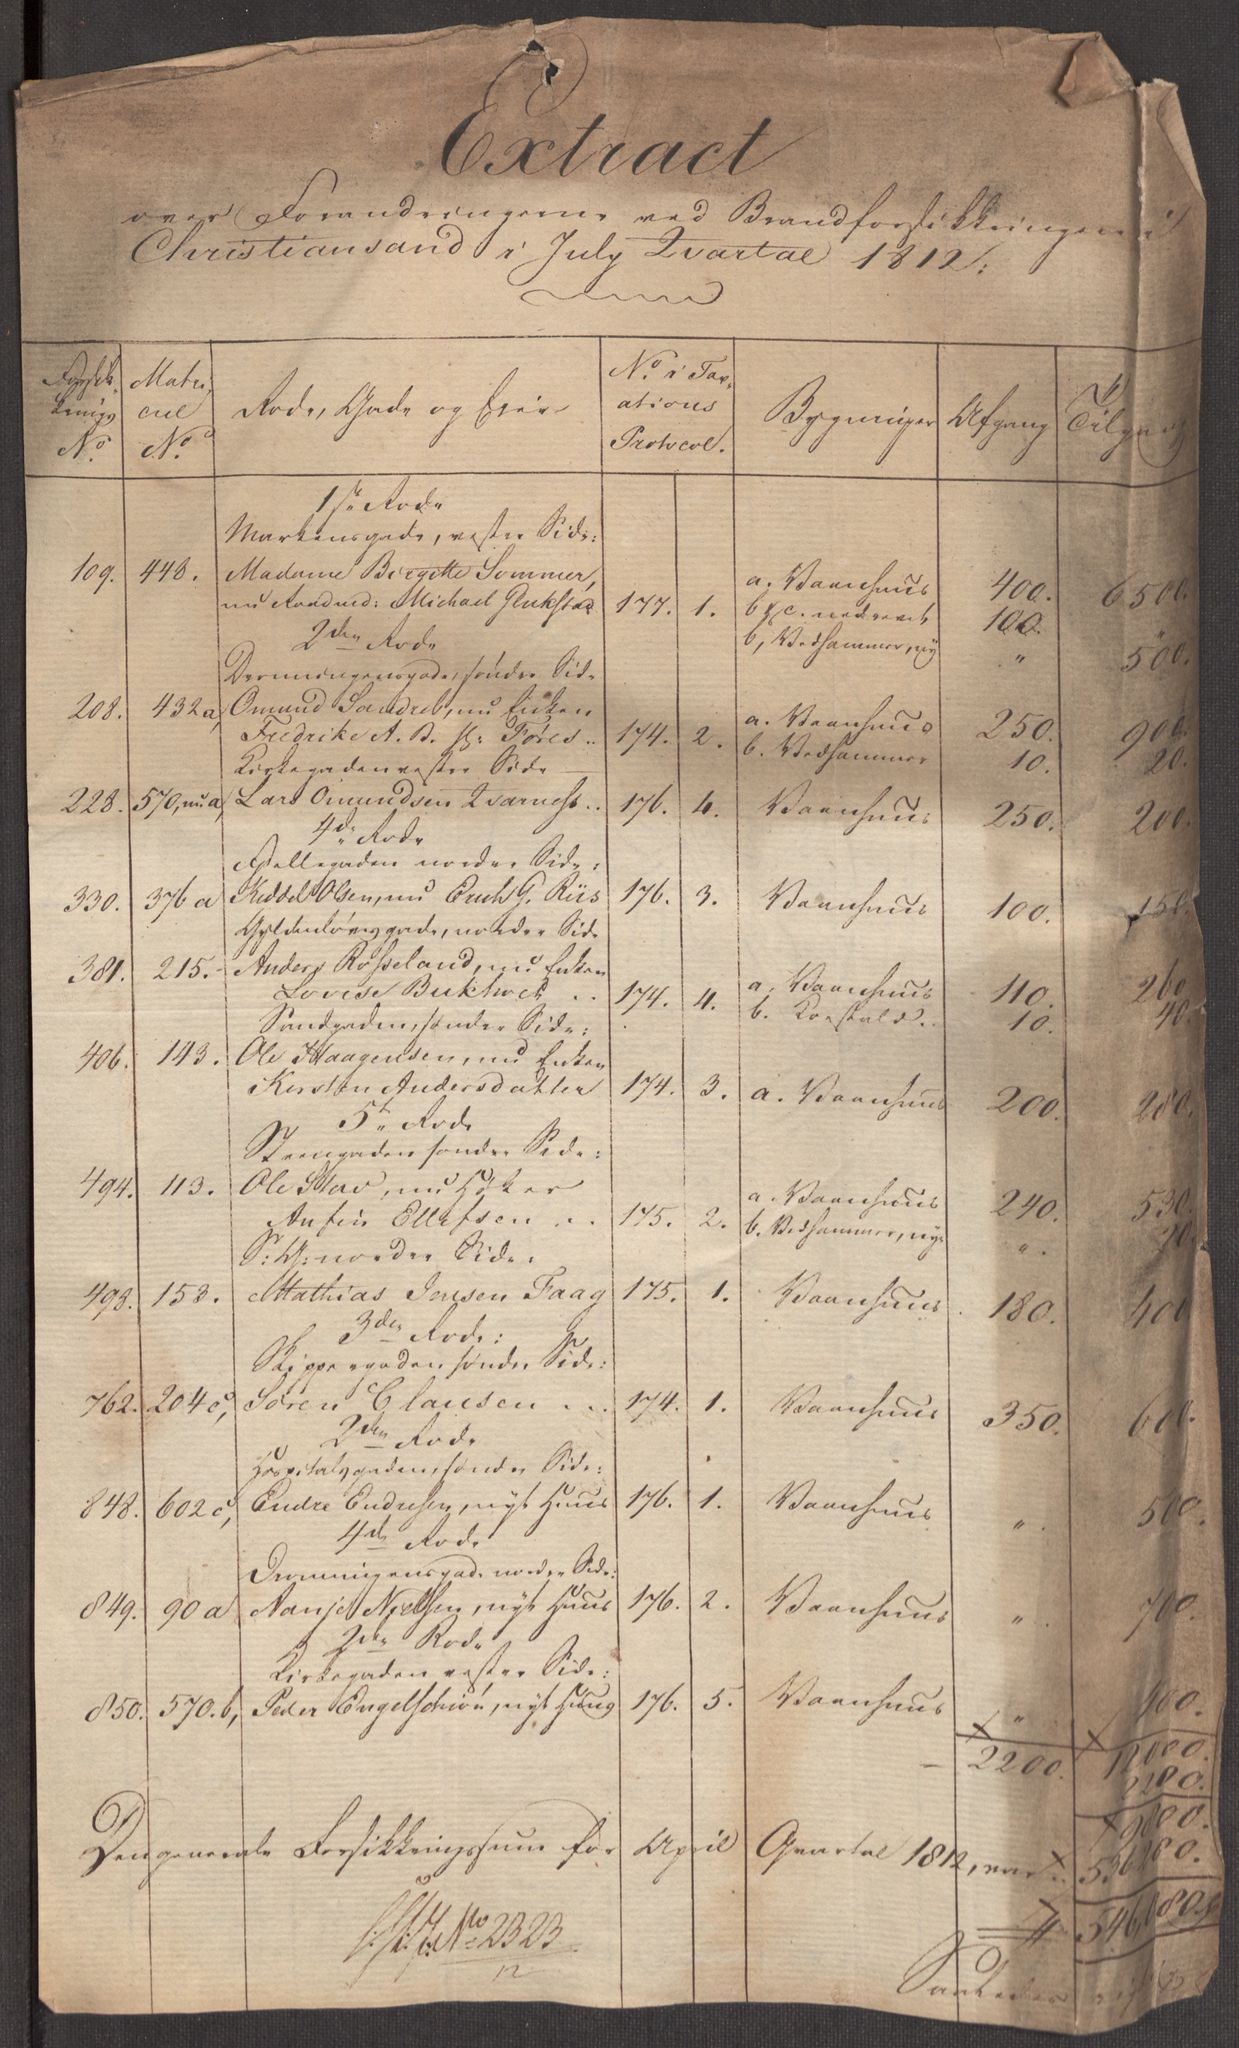 Extract
over Forandringerne ved Brandforsikkringen i
Christiansand i July Qvartal 1812.
Forsik-
krings
No.
Matri-
cul
No.
Rode, Gade og Eier
No. i Tax-
ations
Protocol.
Bygninger
Afgang
Tilgang
1ste Rode
Markensgade, vester Side:
109. 448. Madame Birgitte Sommer,
nu Michael Glukstad 177. 1. a. Vaanhuus 400. 6500.
b & c. nedrevet 100. "
2den Rode b, Vedhammer, ny " 500.
Dronningensgade, sønder Side
208. 432a, Omund Sandreb, nu Enken
Fredrike A. D. Føres.. 174. 2. a. Vaanhuus 250. 900.
b. Vedhammer 10. 20.
Kirkegaden vester Side
228. 570, nu a, Lars Omundsen Qvarnes.. 176. 4. Vaanhuus 250. 200.
4de Rode
Østellegaden norder Side:
330. 376 a Keddel Olsen, nu Erich G. Riis 176. 3. Vaanhuus 100. 150.
Gyldenløvesgade, norder Side
381. 215. Anders Rosseland, nu Enken
Lovise .. 174. 4. a. Vaanhuus 110. 260
b. Koestald.. 10. 40.
Sandgaden, sønder Side:
406. 143. Ole Haagensen, nu Enken
Kirsten Andersdatter 174. 3. a. Vaanhuus 200. 280.
5te Rode
Steengaden sønder Side:
494. 113. Ole Stav, nu Høker
Anfin Ellefsen .. 175. 2. a. Vaanhuus 240. 530.
b. Vedhammer, nye ". 70.
S: G: norder Side.
498. 153. Mathias Jensen Faag 175. 1. Vaanhuus 180. 400
3die Rode:
Skippergaden sønder Side:
762. 204 c, Søren Clausen ... 174. 1. Vaanhuus 350. 600.
2den Rode
Hospitalsgaden, sønder Side:
848. 602 c, Endre Endresen, nyt Huus 176. 1. Vaanhuus ". 500.
4de Rode
Dronningensgade norder Side:
849. 90 a Aanje Nielsen, nyt Huus 176. 2. Vaanhuus ". 700.
2den Rode
Kirkegaden vester Side:
850. 570. b, Peder Engelschiøn, nyt Huus 176. 5. Vaanhuus " 400.
2200. 12080.
2200.
9880.
Den generale Forsikkringssum for April Qvartal 1812, var .. 536280.
546180.
No 2323
12